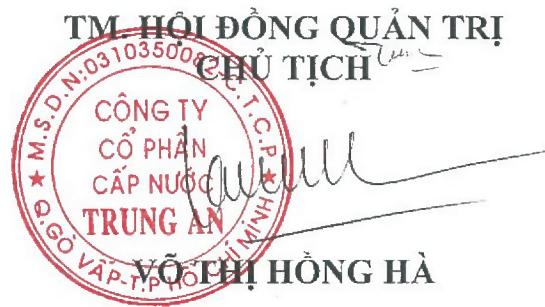 TM. HỘI ĐỒNG QUẢN TRỊ
CHỦ TỊCH
M.S.D.N:0310350082-C.T.C.P
CÔNG TY
CỔ PHẦN
CẤP NƯỚC
TRUNG AN
Q.GÒ VẤP-T.P HỒ CHÍ MINH
VÕ THỊ HỒNG HÀ